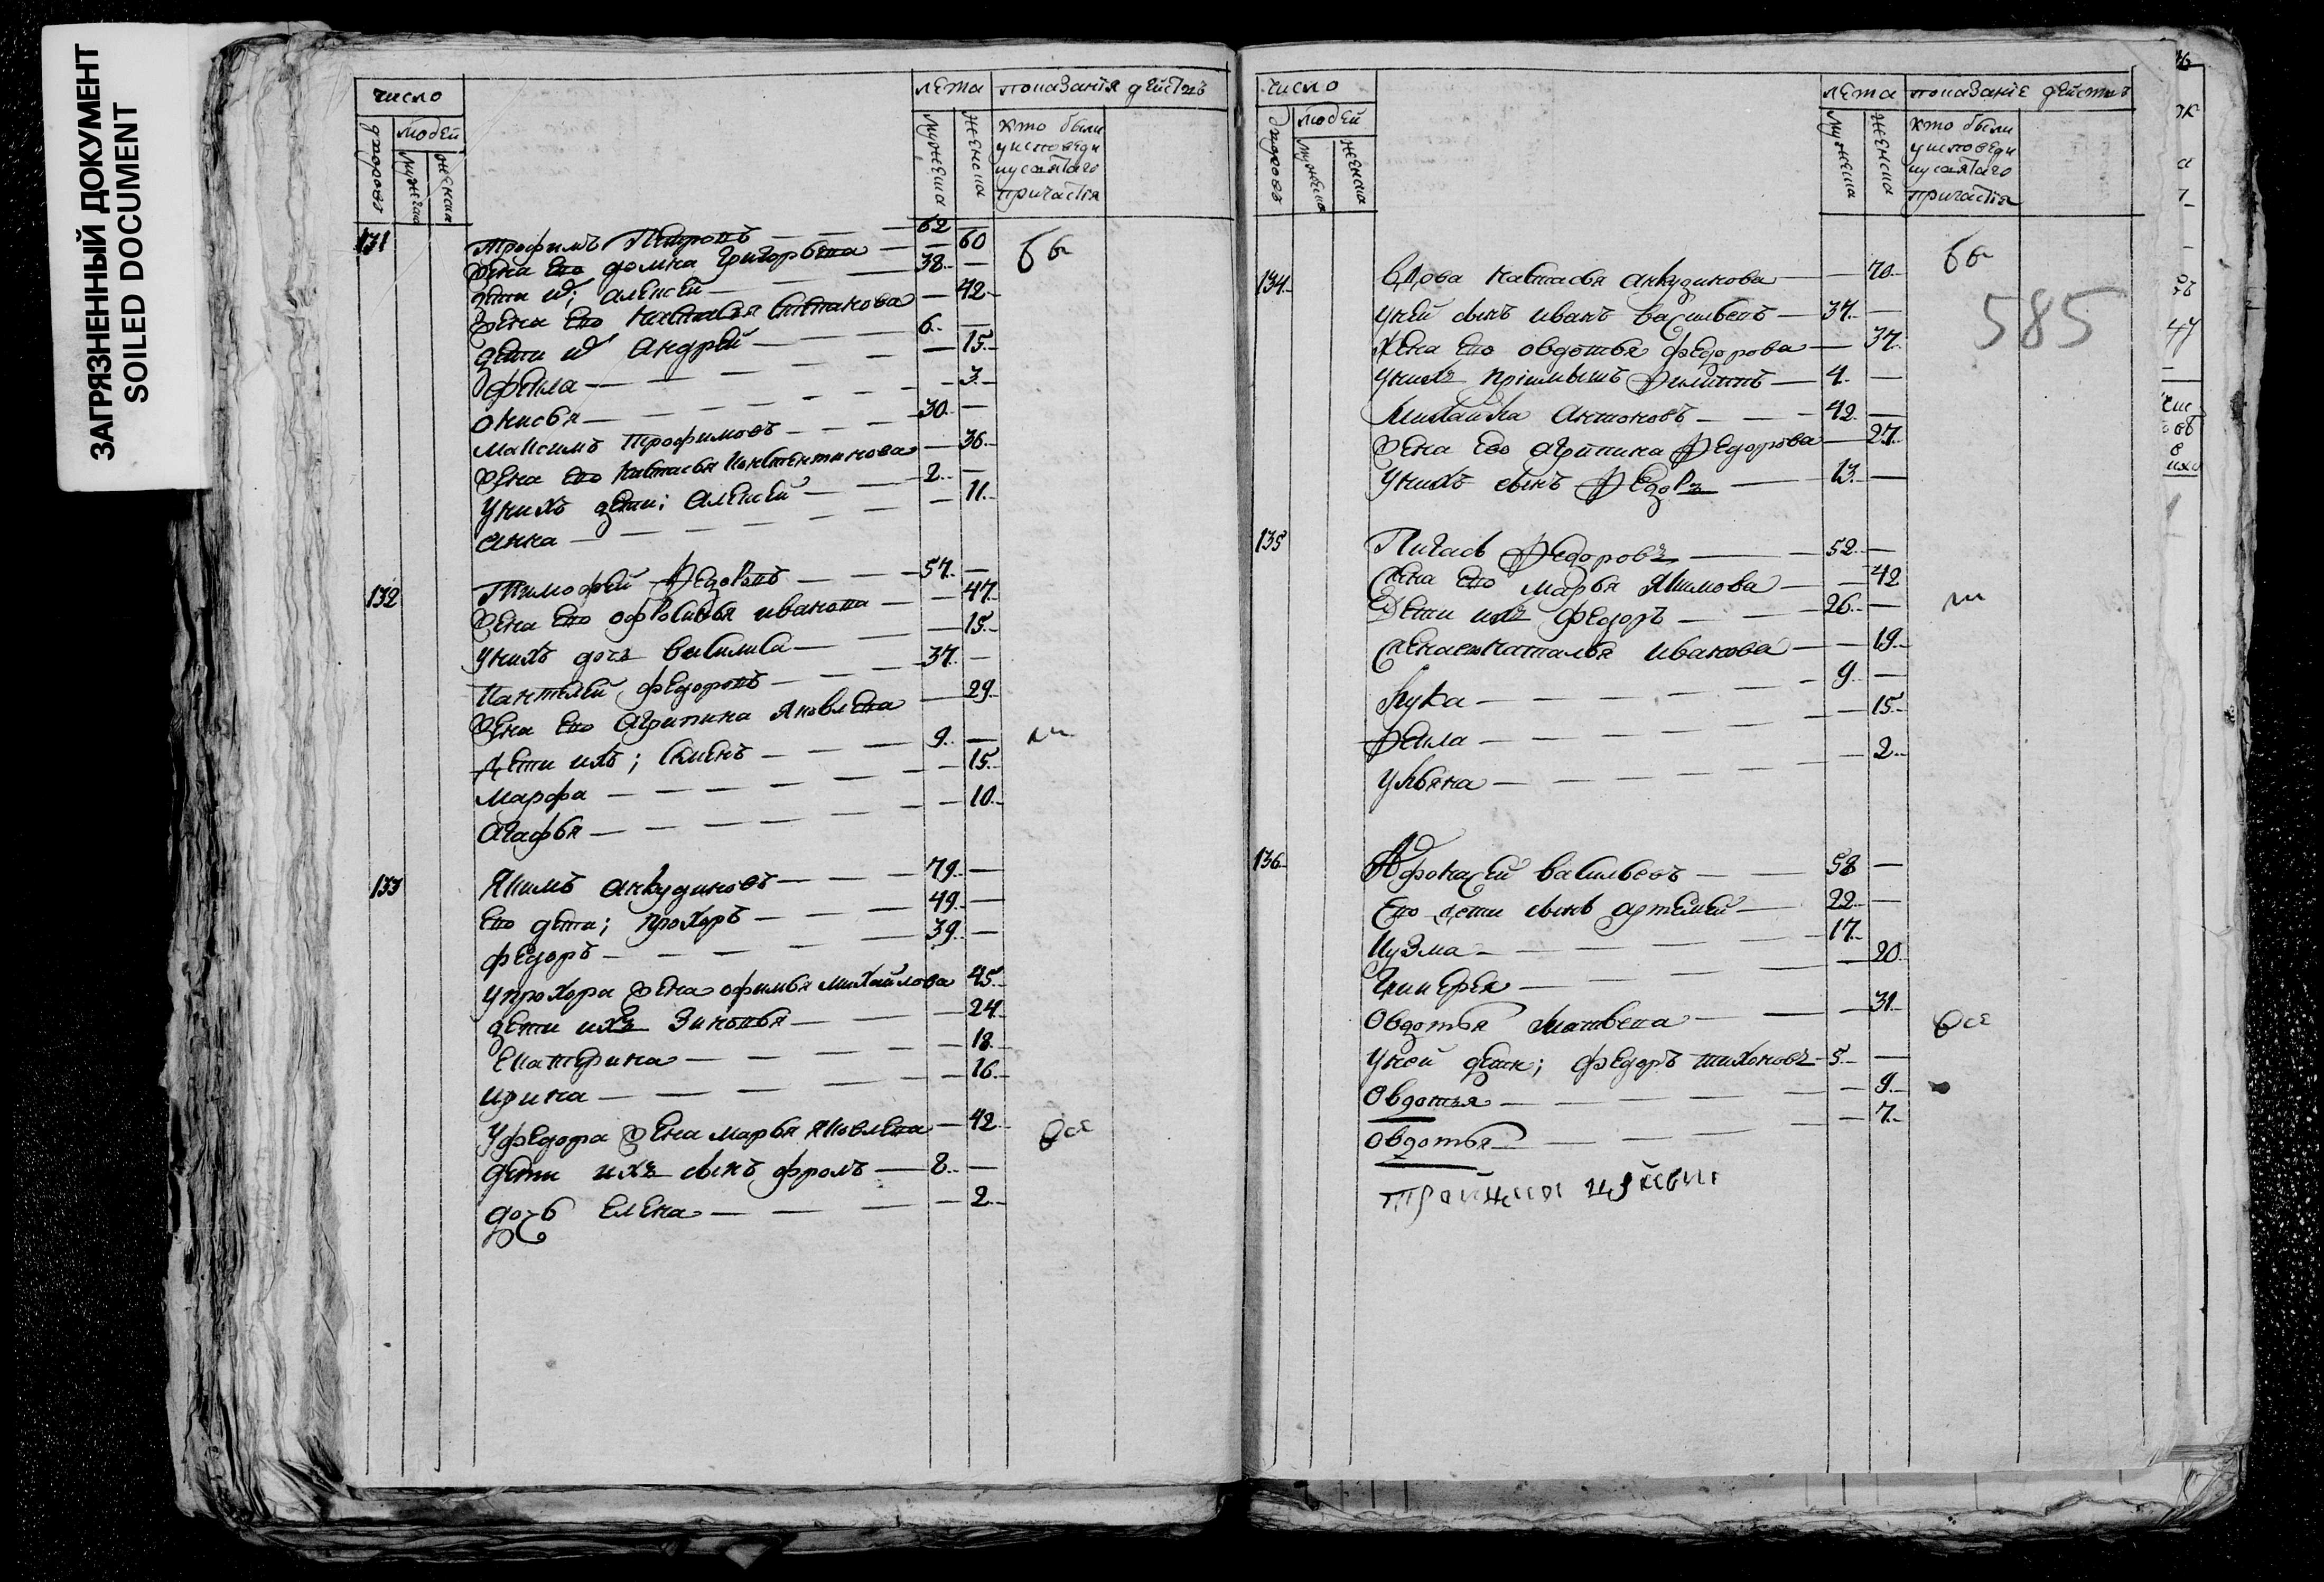 ЗАГРЯЗНЕННЫЙ ДОКУМЕНТ
SOILED DOCUMENT
число
людей
лета
показанїя дейстъ
дворовъ
мужеска
женска
мужеска
женска
кто были
уисповеди
иусвятаго
причастїя
131
Трофимъ Петровъ 62
Жена Его домна Григорьева 60
дети их; алексей 38
Жена Его Настасья Степанова 42
дети их Андрей 6
Фекла 15
Окисья 3
Максимъ Трофимовъ 30
Жена Его Настасья Констентинова 36
Унихъ дети; Алексей 2
Анна 11
132
Тимофей Федоровъ 57
Жена Его офросинья иванова 47
Унихъ дочь Василиса 15
Пантелей Федоровъ 37
Жена Его Агрипина Яковлева 29
Дети ихъ; 9
Марфа 15
Агафья 10
133
Якимъ анкудиновъ 79
Его дети; прохоръ 49
Федоръ 39
Упрохора Жена офимья михайлова 45
дети ихъ Зиновья 24
Екатерина 18
ирина 16
Уфедора Жена марья яковлева 42
все
дети ихъ сынъ фролъ 8
дочь Елена 2
число
людей
лета
показанїе действъ
дворовъ
мужеска
женска
мужеска
женска
кто были
уисповеди
иусвятаго
причастїя
134
Вдова Настасья анкудинова 70
585
Уней сынъ иванъ васильевъ 37
Жена Его овдотья федорова 37
Унихъ Филиппъ 4
Михайла Антоновъ 42
Жена Ево агрипина Федорова 27
Унихъ сынъ Федоръ 13
135
Пигасъ Федоровъ 52
Жена Его марья Якимова 42
Дети ихъ федоръ 26
Жена ею наталья иванова 19
Лука 9
Фекла 15
Ульяна 2
136
Афонасей васильевъ 58
Его дети сынъ артемей 22
Кузма 17
20
Овдотья матвева 31
все
Уней дети; федоръ тихоновъ 5
Овдотья 9
овдотья 7